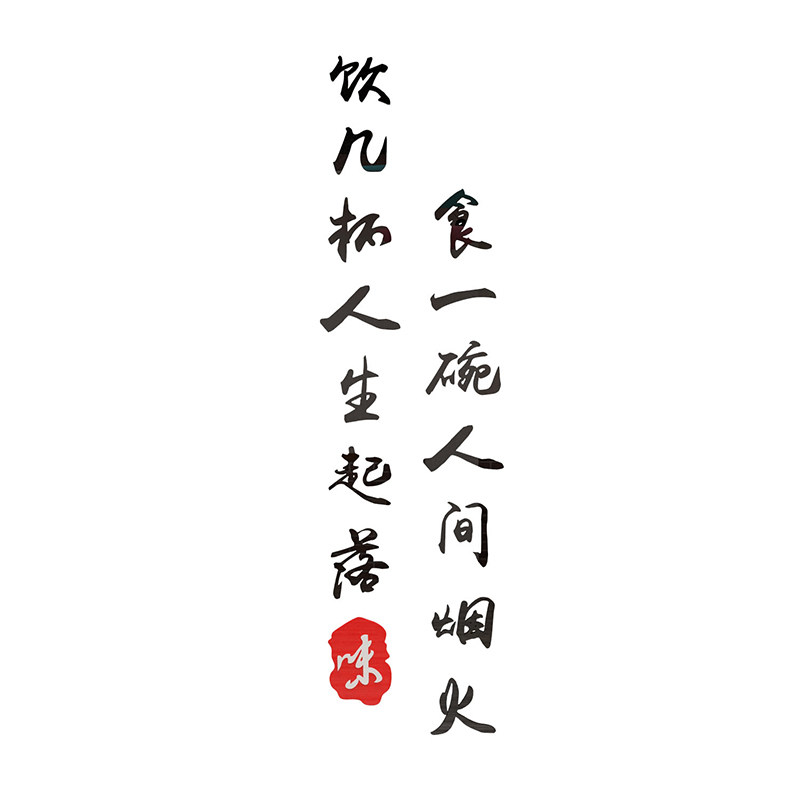 食一碗人间烟火
饮几杯人生起落
味